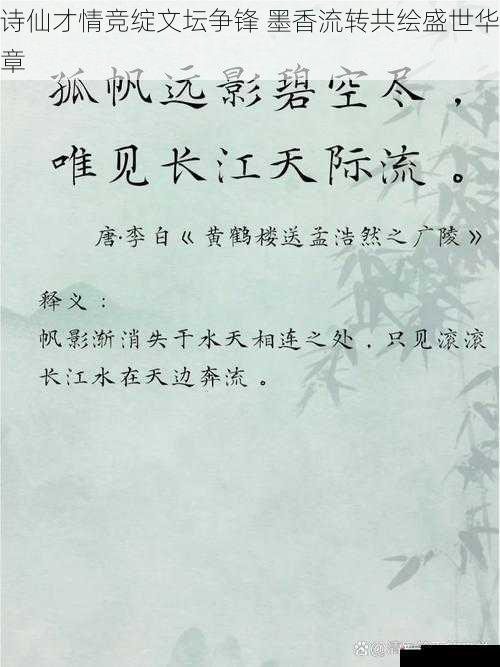 诗仙才情竞绽文坛争锋 墨香流转共绘盛世华
章
孤帆远影碧空尽，
唯见长江天际流。
唐·李白《黄鹤楼送孟浩然之广陵》
释义：
帆影渐消失于水天相连之处．只见滚滚
长江水在天边奔流。